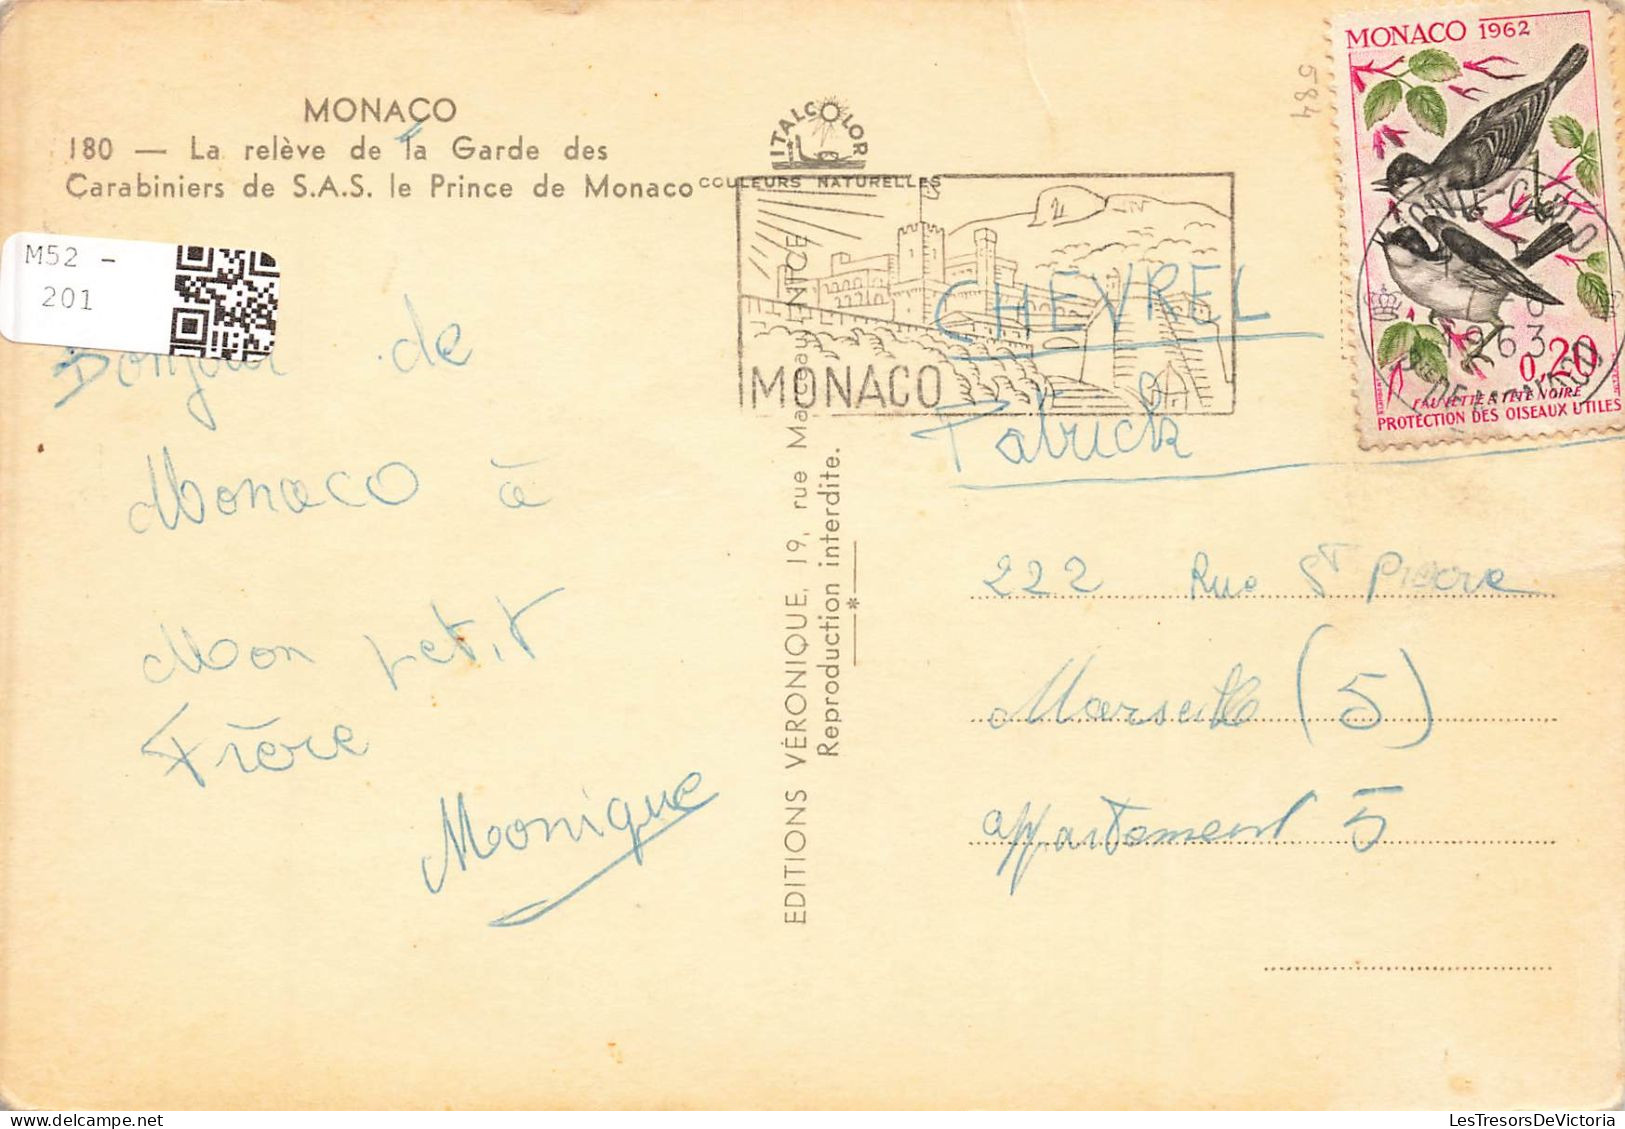 MONACO
180 — La relève de la Garde des
Carabiniers de S.A.S. le Prince de Monaco
M52 -
201
Bonjour de
Monaco à
Mon petit
Frère
Monique
ITALCOLOR
COULEURS NATURELLES
MONACO
EDITIONS VÉRONIQUE, 19, rue Marceau, NICE
Reproduction interdite.
584
MONACO 1962
MONTE-CARLO
1963
0,20
FAUVETTE A TETE NOIRE
PROTECTION DES OISEAUX UTILES
CHEVREL
Patrick
222 Rue St Pierre
Marseille (5)
appartement 5
LesTresorsDeVictoria